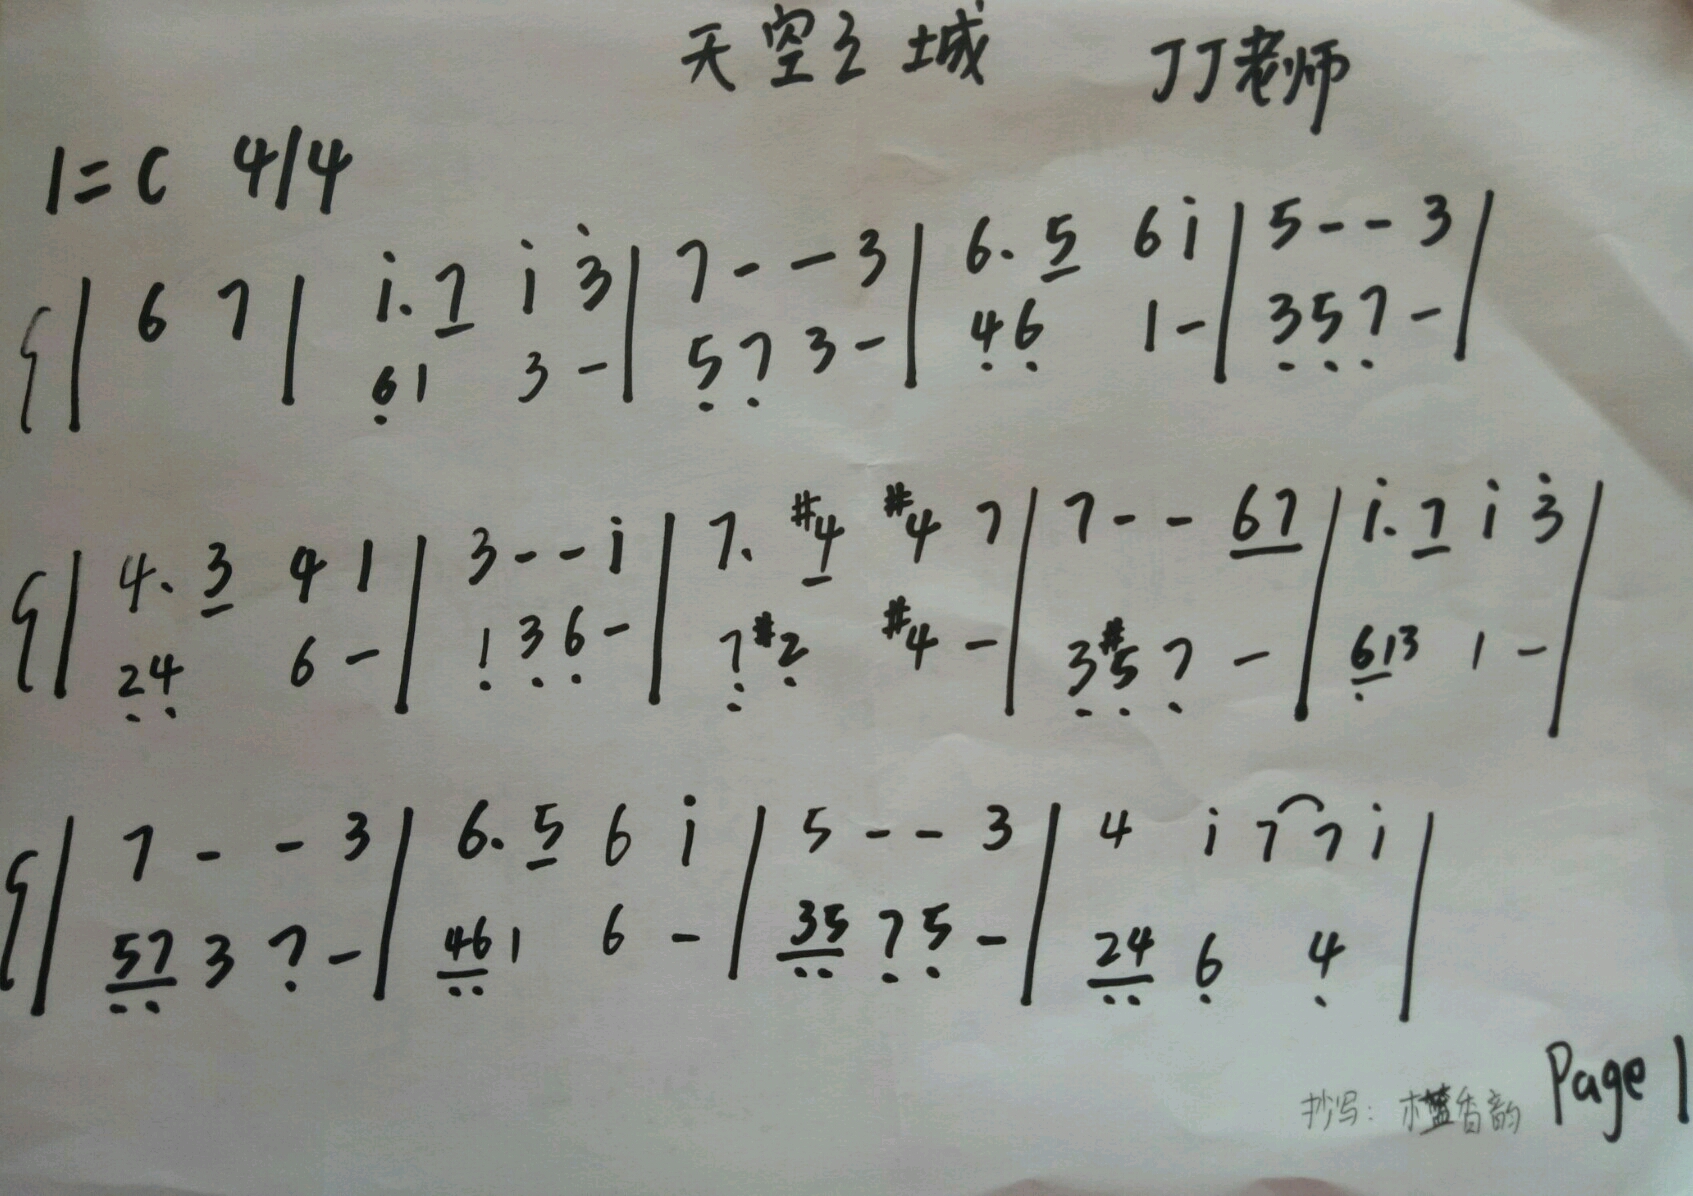 天空之城 JJ老师
1=C 4/4
| 6 7 | i. 7 i 3̇ | 7 - - 3 | 6. 5 6 i | 5 - - 3 |
6̣ 1 3 - | 5̣ 7̣ 3 - | 4̣ 6̣ 1 - | 3̣ 5̣ 7̣ - |
| 4. 3 4 1 | 3 - - i | 7. #4 #4 7 | 7 - - 6 7 | i. 7 i 3̇ |
2̣ 4̣ 6 - | 1̣ 3̣ 6̣ - | 7̣ #2̣ #4 - | 3̣ #5̣ 7̣ - | 6̣ 1 3 1 - |
| 7 - - 3 | 6. 5 6 i | 5 - - 3 | 4 i 7 7 i |
5̣ 7̣ 3 7̣ - | 4̣ 6̣ 1 6 - | 3̣ 5̣ 7̣ 5̣ - | 2̣ 4̣ 6̣ 4̣ |
Page 1
抄写: 香韵